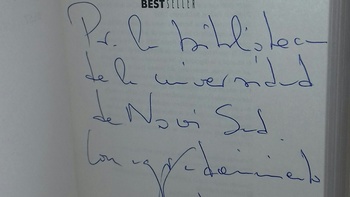 BESTSELLER
Pr. la biblioteca
de la universidad
de Novi Sad
con agradecimiento